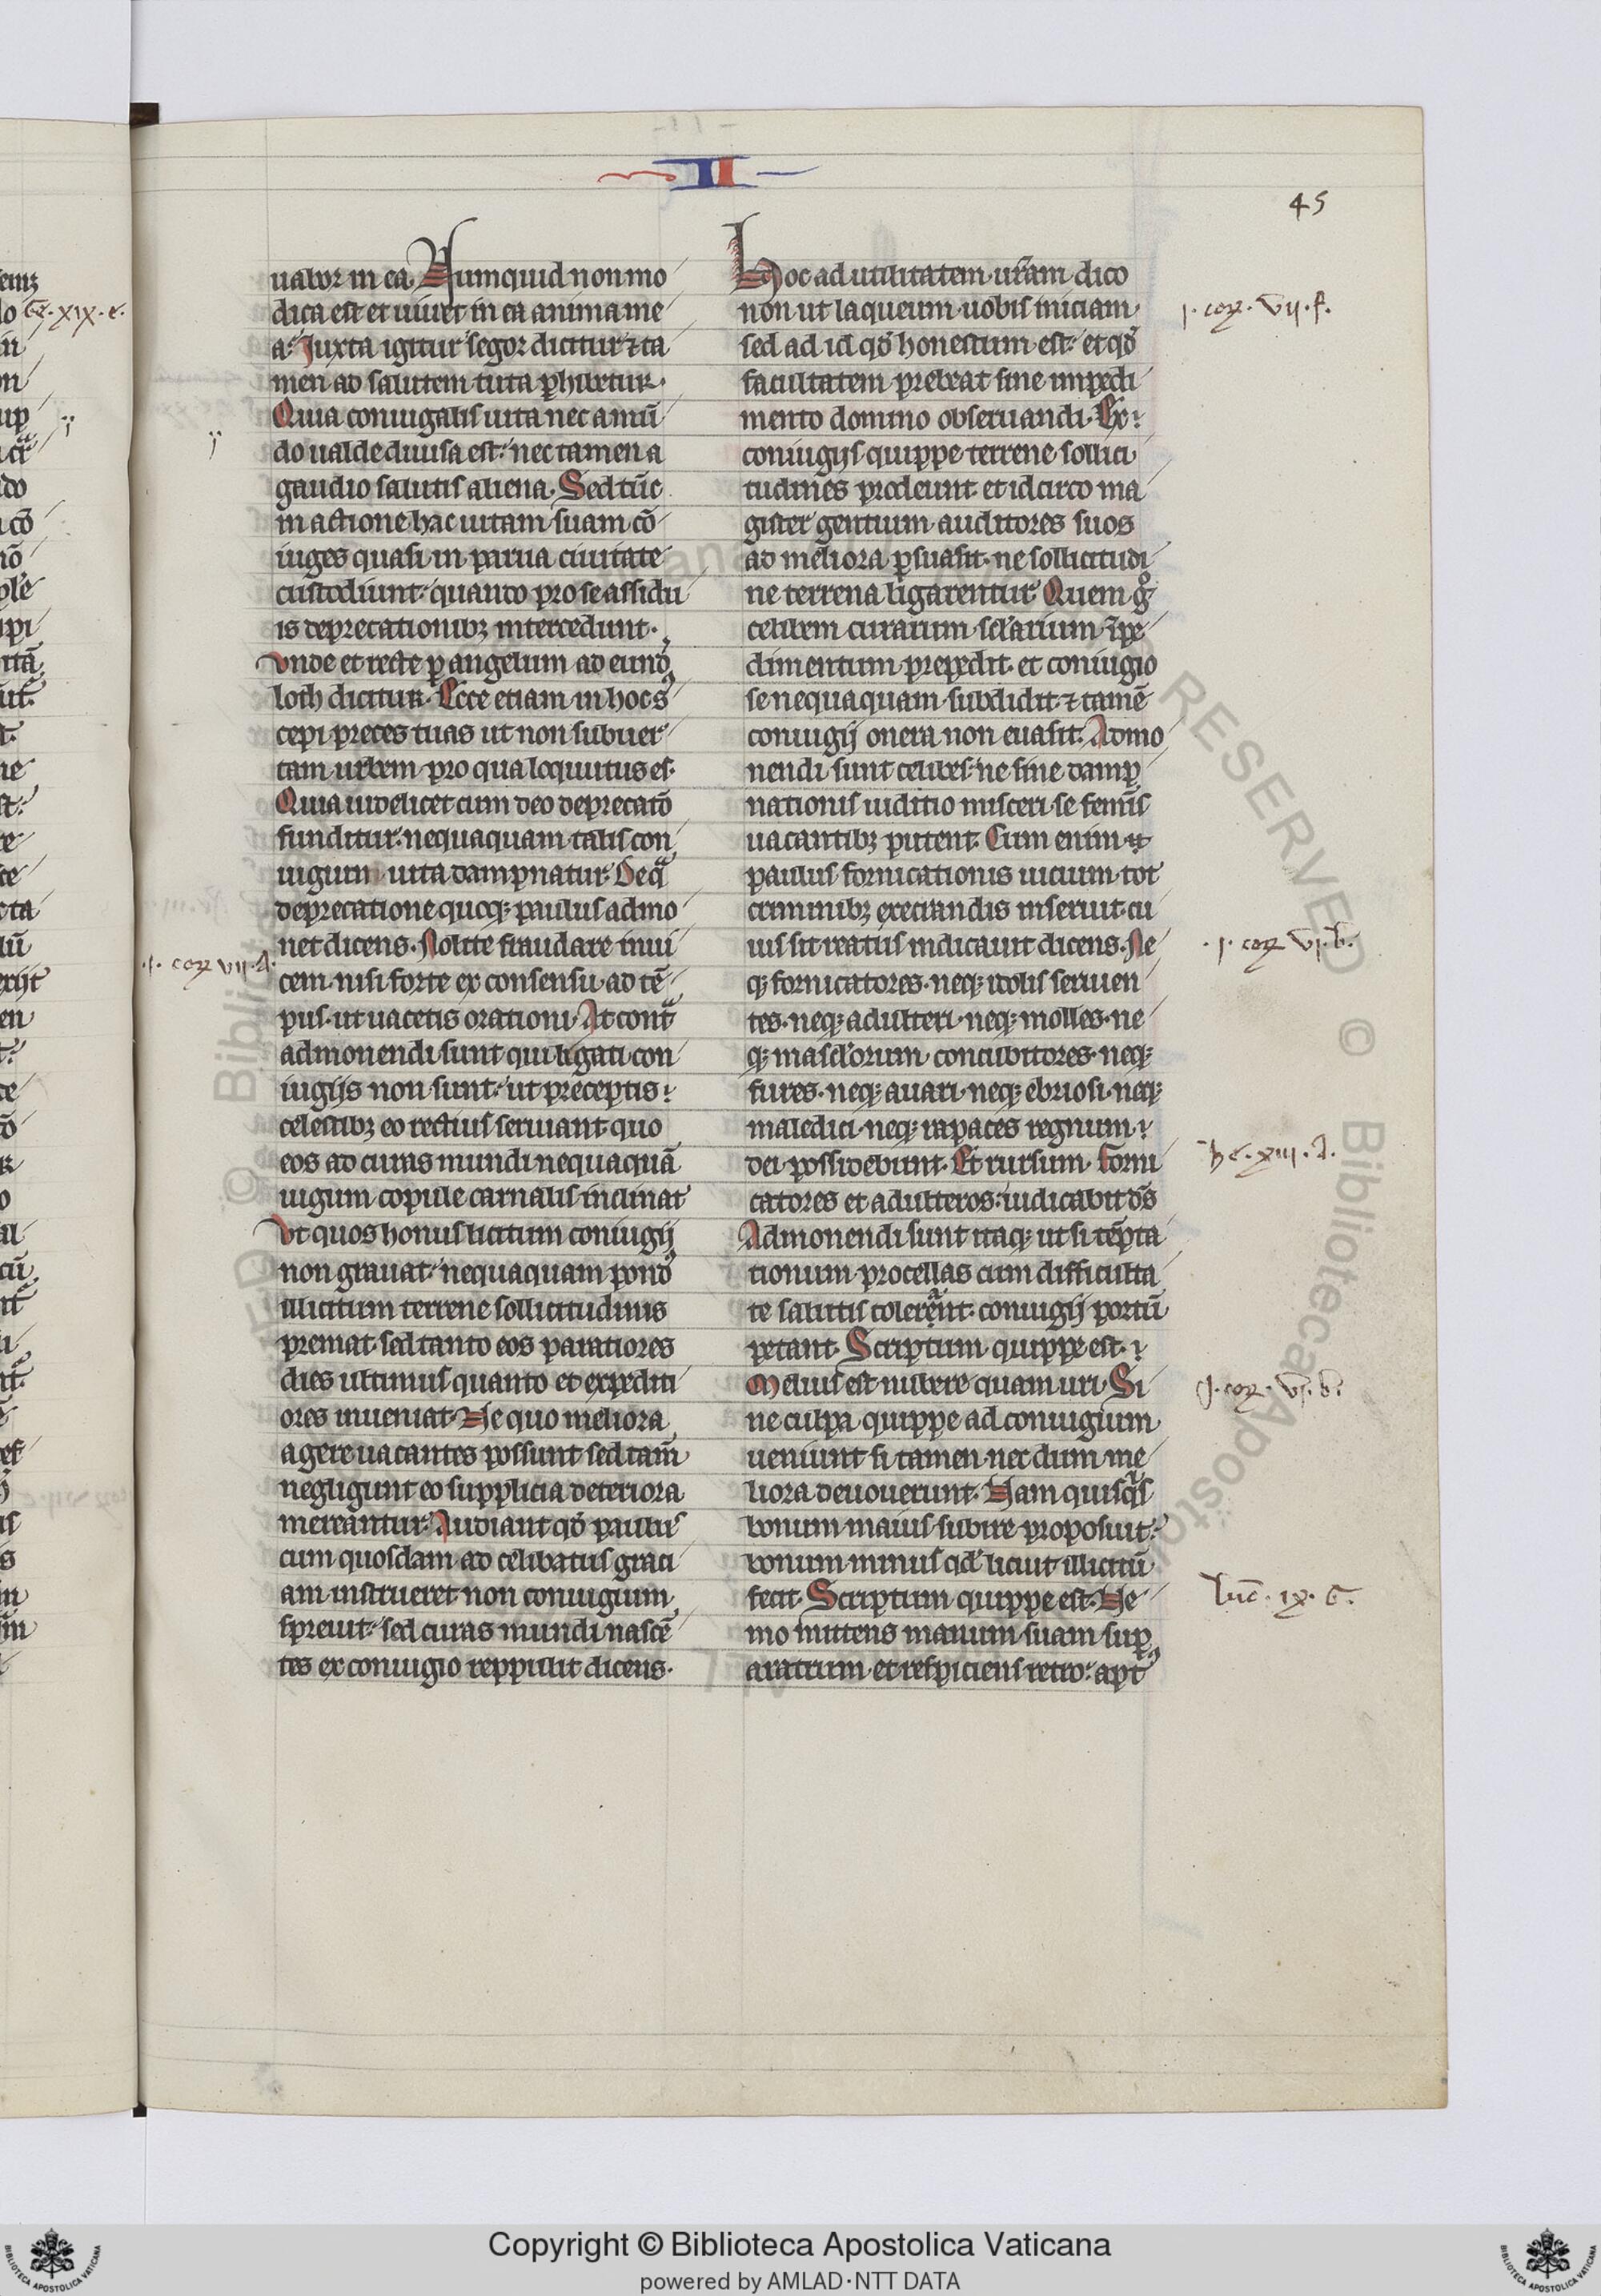 II
45
uabor in ea. Numquid non mo
dica est et uiuet in ea anima me
a. Juxta igitur segor dicitur ⁊ ta
men ad salutem tuta ꝑhibetur.
Quia coniugalis uita nec a mū
do ualde diuisa est. nec tamen a
gaudio salutis aliena. Sed tūc
in actione hac uitam suam cō
iuges quasi in parua ciuitate
custodiunt. quando pro se assidu
is deprecationibꝫ intercedunt.
Vnde et recte ꝑ angelum ad eundꝯ
loth dicitur. Ecce etiam in hoc sꝯ
cepi preces tuas ut non subuer
tam urbem pro qua loquutus es.
Quia uidelicet cum deo deprecatō
funditur. nequaquam talis con
iugum uita dampnatur. De qͣ
deprecatione quoqꝫ paulus admo
net dicens. Nolite fraudare inui
cem nisi forte ex consensu ad tē
pus. ut uacetis orationi. At contͣ
admonendi sunt qui ligati con
iugijs non sunt. ut preceptis
celestibꝫ eo rectius seruiant quo
eos ad curas mundi nequaquā
iugum copule carnalis inclinat
Vt quos honus licitum coniugij
non grauat. nequaquam pondꝯ
illicitum terrene sollicitudinis
premat. sed tanto eos paratiores
dies ultimus quanto et expediti
ores inueniat. Ne quo meliora
agere uacantes possunt sed tam̄
negligunt eo supplicia deteriora
mereantur. Audiant qď paulus
cum quosdam ad celibatus graci
am instrueret non coniugium
spreuit. sed curas mundi nascē
tes ex coniugio reppulit dicens.
Hoc ad utilitatem ur̄am dico
non ut laqueum uobis iniciam
sed ad id qď honestum est. et qď
facultatem prebeat sine impedi
mento domino obseruandi. Ex
coniugijs quippe terrene sollici
tudines prodeunt. et idcirco ma
gister gentium auditores suos
ad meliora ꝑsuasit. ne sollicitudi
ne terrena ligarentur. Quem gͦ
celibem curarum sclarium īpe
dimentum prepedit. et coniugio
se nequaquam subdidit. ⁊ tamē
coniugij onera non euasit. Admo
nendi sunt celibes. ne sine damp
nationis iuditio misceri se femīs
uacantibꝫ putent. Cum enim
paulus fornicationis uicium tot
criminibꝫ execrandis inseruit. cu
ius sit reatus indicauit dicens. Ne
qꝫ fornicatores. neqꝫ idolis seruien
tes. neqꝫ adulteri. neqꝫ molles. ne
qꝫ masclorum concubitores. neqꝫ
fures. neqꝫ auari. neqꝫ ebriosi. neqꝫ
maledici. neqꝫ rapaces regnum
dei possidebunt. Et rursum. Forni
catores et adulteros. iudicabit ds̄
Admonendi sunt itaqꝫ ut si tēpta
tionum procellas cum difficulta
te salutis colerent. coniugij portū
petant. Scriptum quippe est.
Melius est nubere quam uri. Si
ne culpa quippe ad coniugium
ueniunt si tamen nec dum me
liora deuouerunt. Nam quisqͥs
bonum maius subire proposuit.
bonum minus qď licuit illicitū
fecit. Scriptum quippe est. Ne
mo mittens manum suam suꝑ
aratrum et respiciens retro. aptꝯ
Ge. xix. e.
.1. cor vii. a.
1. cor. vii. f.
.1. cor vi. b.
he. xiii. a.
1. cor. vi. b.
luc. ix. G.
Copyright © Biblioteca Apostolica Vaticana
powered by AMLAD·NTT DATA
BIBLIOTECA APOSTOLICA VATICANA
BIBLIOTECA APOSTOLICA VATICANA